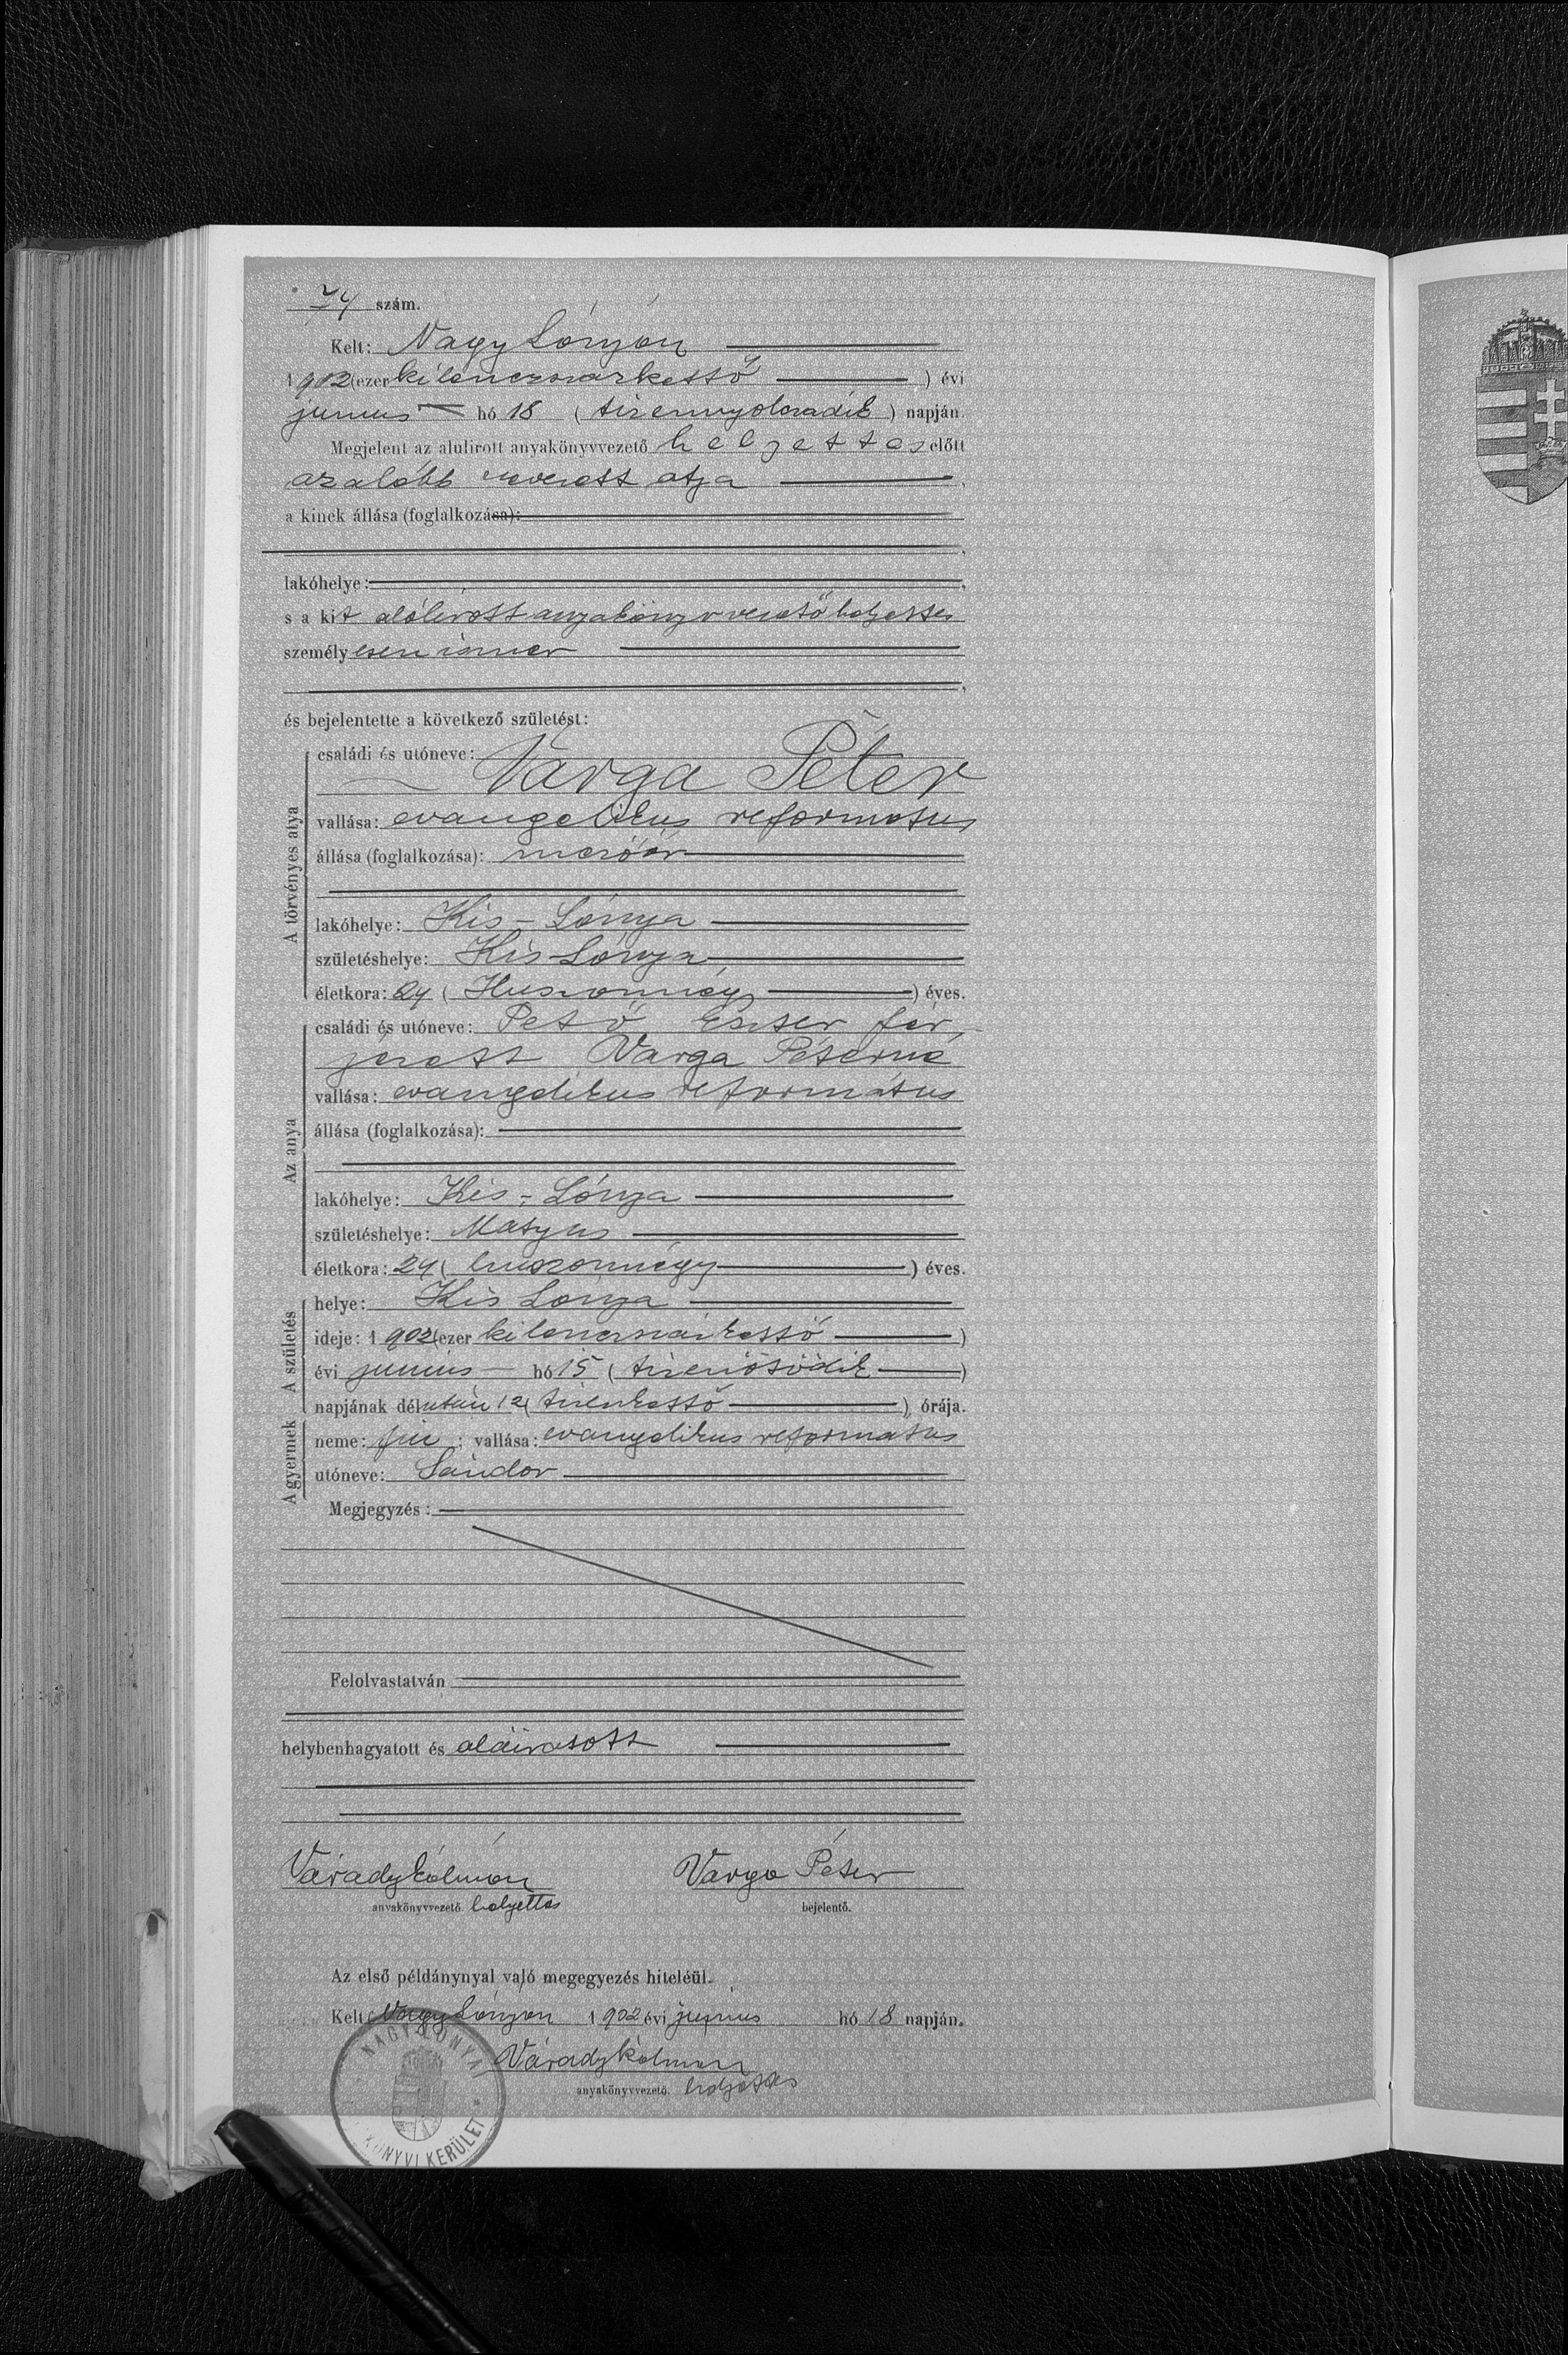 74 szám.
Kelt: Nagy Lónyán
1902 (ezer kilenczszázkettő) évi
junius hó 18 (tizennyolczadik) napján.
Megjelent az alulirott anyakönyvvezető helyettes előtt
az alább nevezett atya
a kinek állása (foglalkozása):
lakóhelye:
s a kit alólirott anyakönyvvezető helyettes
személyesen ismer
és bejelentette a következő születést:
A törvényes atya
családi és utóneve:
Varga Péter
vallása: evangelikus reformatus
állása (foglalkozása): mezőőr
lakóhelye: Kis-Lónya
születéshelye: Kis-Lónya
életkora: 24 (Huszonnégy) éves.
Az anya
családi és utóneve: Pető Eszter fér-
jezett Varga Péterné
vallása: evangelikus református
állása (foglalkozása):
lakóhelye: Kis-Lónya
születéshelye: Matyus
életkora: 24 (huszonnégy) éves.
A születés
helye: Kis Lónya
ideje: 1902 (ezer kilenczszázkettő)
évi junius hó 15 (tizenötödik)
napjának délután 12 (tizenkettő) órája.
A gyermek
neme: fiu; vallása: evangelikus reformatus
utóneve: Sándor
Megjegyzés:
Felolvastatván
helybenhagyatott és aláiratott
Várady Kálmán Varga Péter
anyakönyvvezető helyettes bejelentő.
Az első példánynyal való megegyezés hiteléül.
Kelt Nagy Lónyán 1902 évi junius hó 18 napján.
Várady Kálmán
anyakönyvvezető. helyettes
NAGY LÓNYA
KÖNYVI KERÜLET